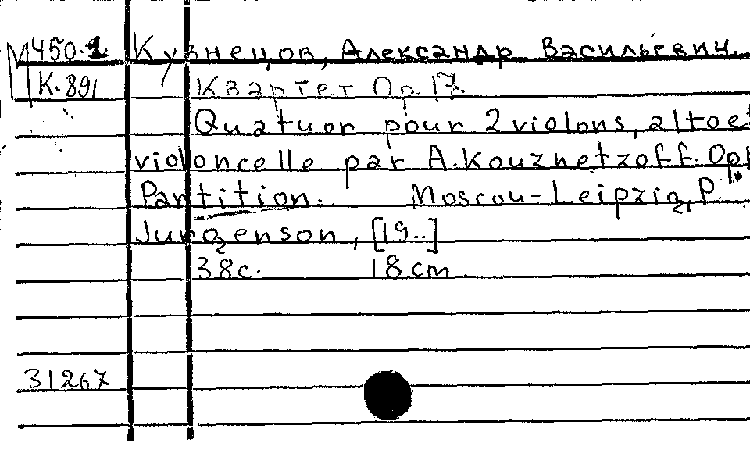 М450.1 Кузнецов, Александр Васильевич.
К.891 Квартет Ор. 17.
Quatuor pour 2 violons, alto et
violoncelle par A. Kouznetzoff. Op
Partition. Moscou-Leipzig, P.
Jurgenson, [19..]
38с. 18 cm.
31267